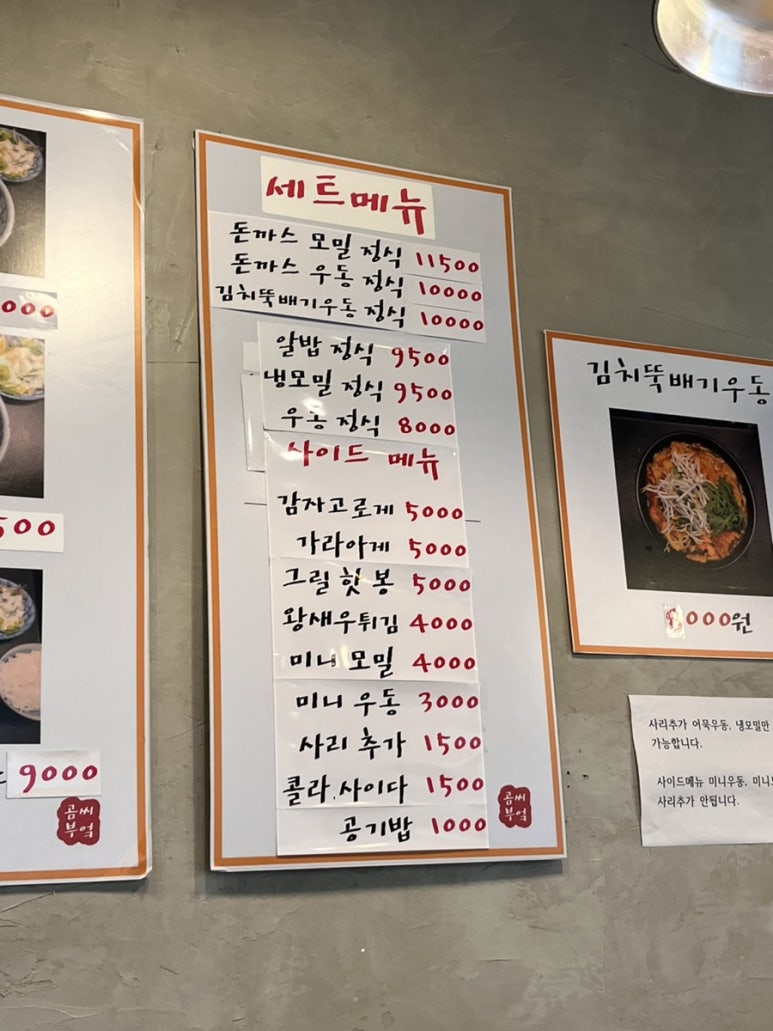 000
500
9000
곰씨
부엌
세트메뉴
돈까스 모밀 정식 11500
돈까스 우동 정식 10000
김치뚝배기우동 정식 10000
알밥 정식 9500
냉모밀 정식 9500
우동 정식 8000
사이드 메뉴
감자고로게 5000
가라아게 5000
그릴 핫 봉 5000
왕새우튀김 4000
미니 모밀 4000
미니 우동 3000
사리 추가 1500
콜라.사이다 1500
공기밥 1000
곰씨
부엌
김치뚝배기우동
000원
사리추가 어묵우동, 냉모밀만
가능합니다.
사이드메뉴 미니우동,
사리추가 안됩니다.